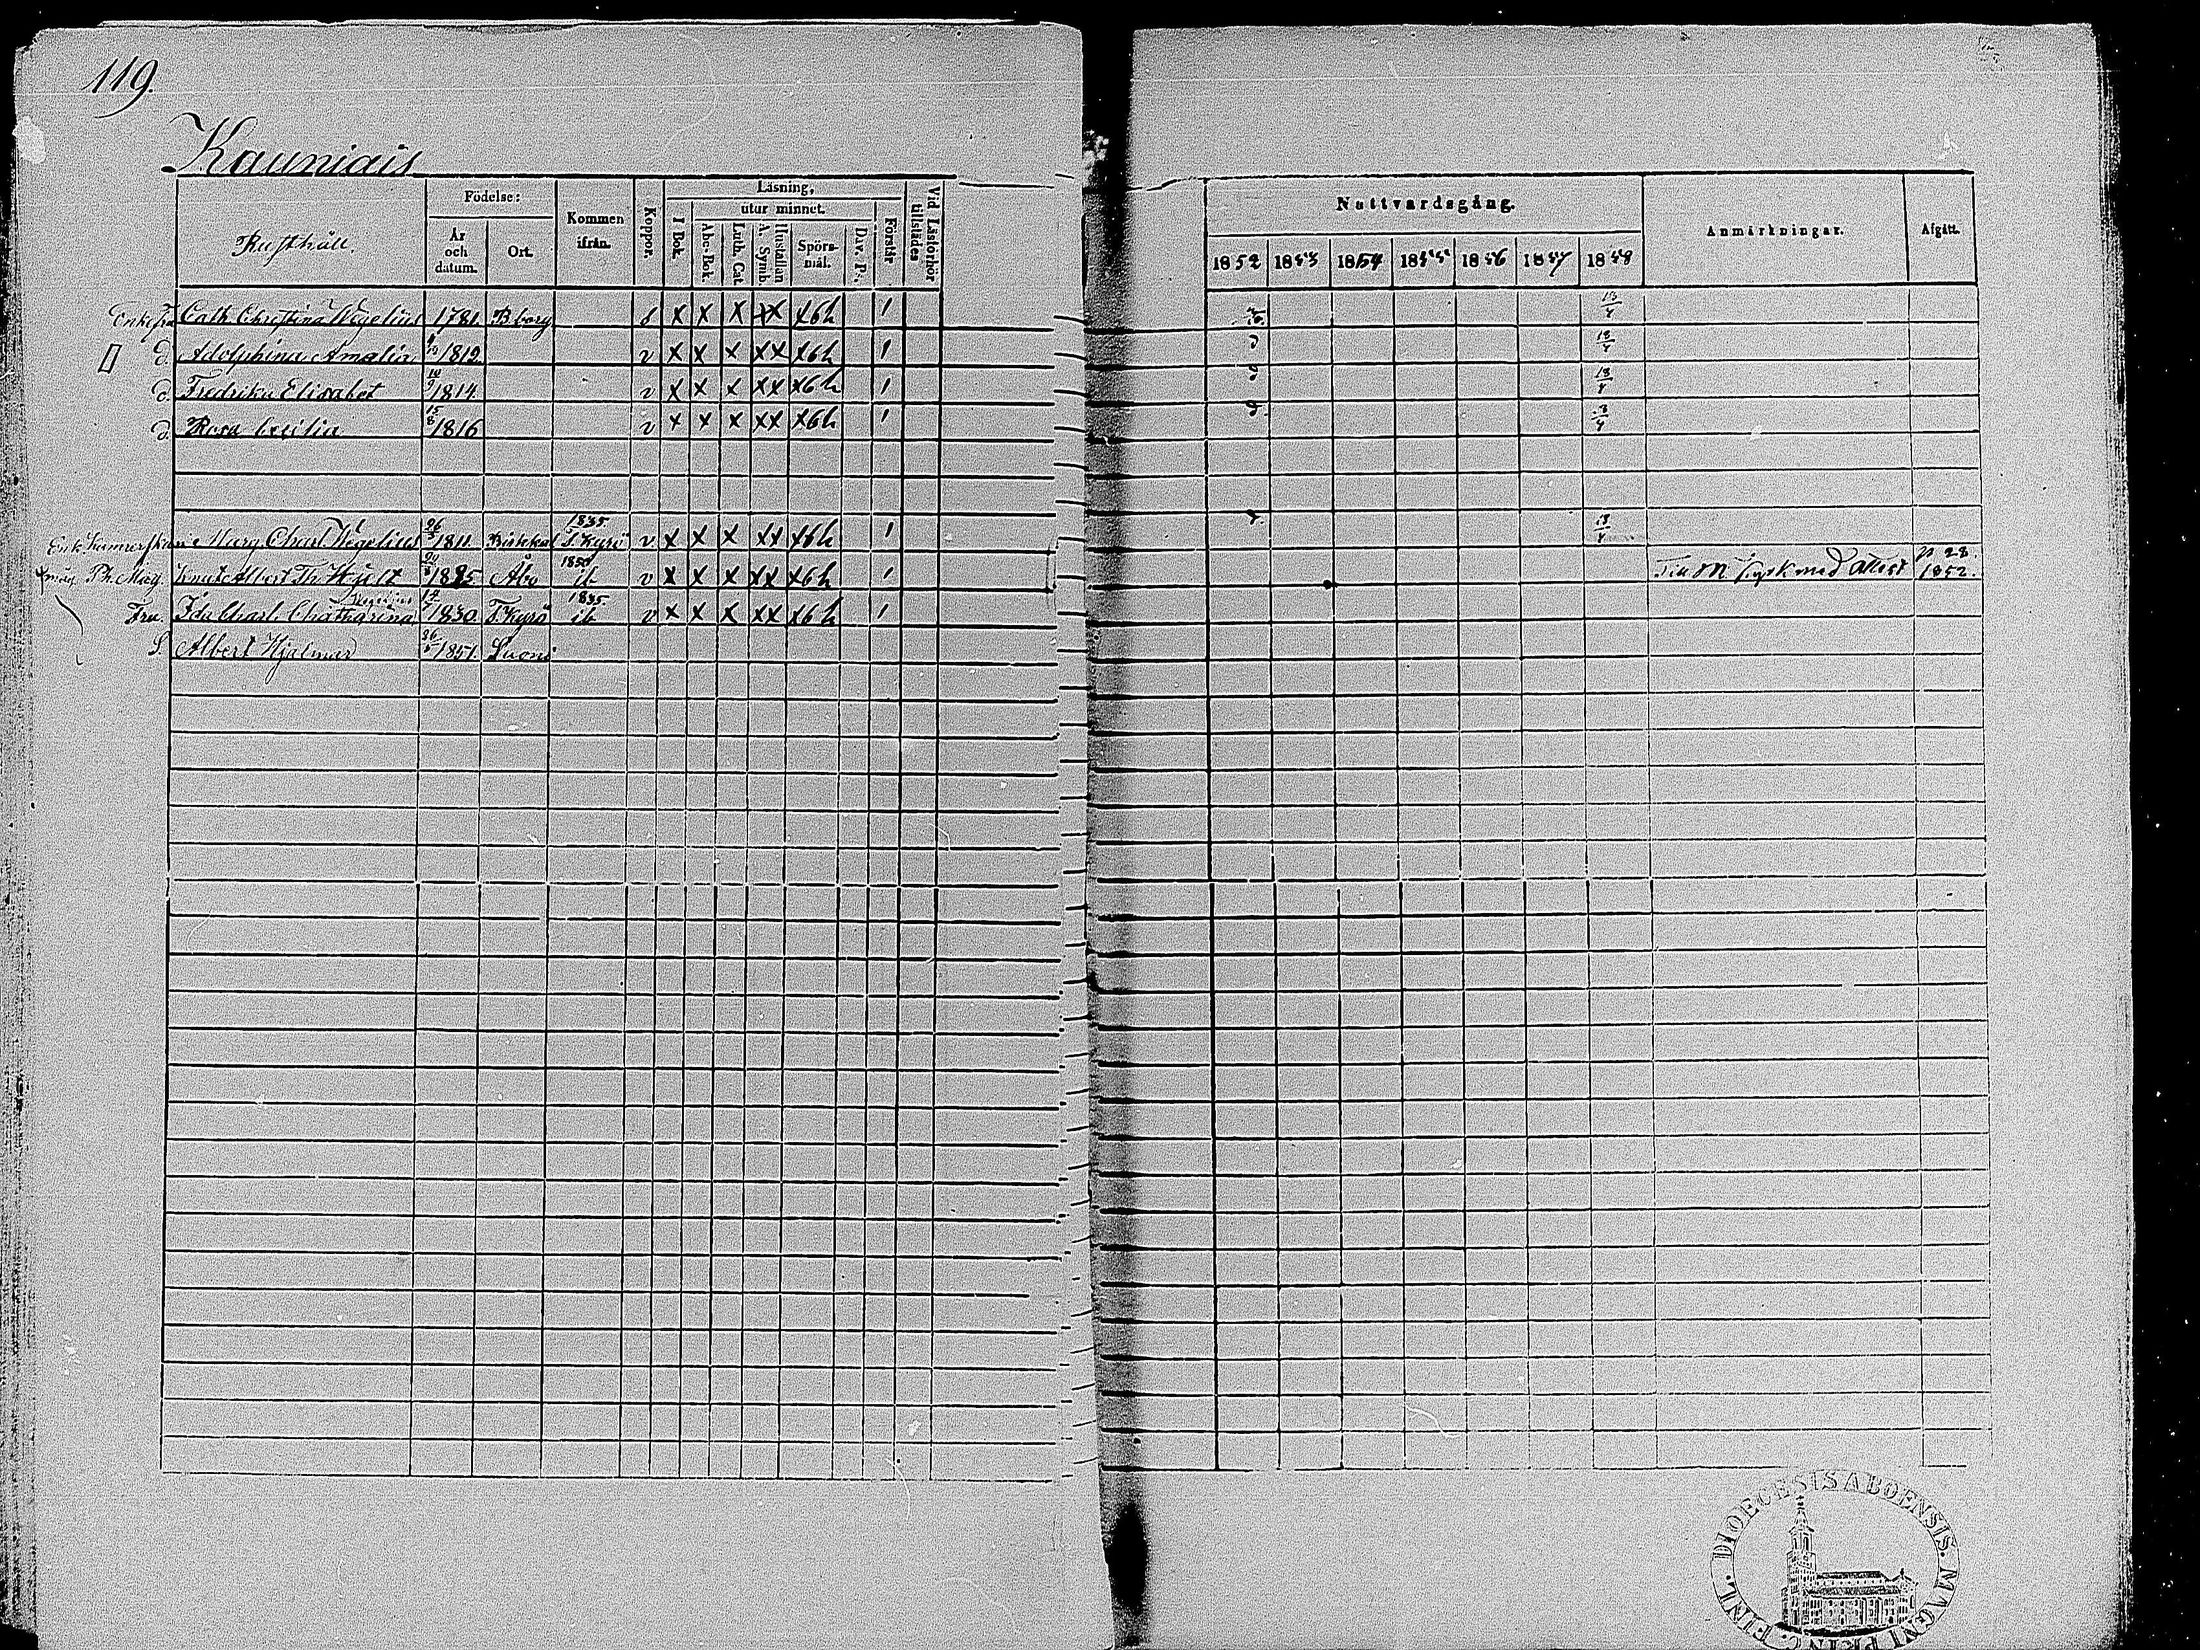 119.
Kauniais
Rusthåll.
Födelse:
År och datum.
Ort.
Kommen ifrån.
Koppor.
Läsning,
utur minnet.
I Bok.
Abc-Bok.
Luth. Cat.
Hustaflan A. Symb.
Spörs-mål.
Dav. Ps.
Förstår
Vid Läsförhör tillstädes
Nattvardsgång.
Anmärkningar.
Afgått.
1852 1853 1854 1855 1856 1857 1858
Enkefru Cath. Christina Wegelius 1781. B.borg x x x xx x6h 1 13/4
d. Adolphina Amalia 1812. v x x x xx x6h 1 13/4
d. Fredrika Elisabet 1814. v x x x xx x6h 1 13/4
d. Rosa Cecilia 15/8 1816 v x x x xx x6h 1 13/4
Marg. Charl. Wegelius 26 1811. 1835. T. Kyrö v x x x xx x6h 1 13/4
Ph. Mag. Knut Albert Th. Hjelt 1825 Åbo 1850 ib v x x x xx x6h 1 Till med attest 1852.
Fru. Ida Charl. Chatharina Wegelius 1830. T.Kyrö 1835. ib v x x x xx x6h 1
S. Albert Hjalmar 26 1851.
DIOECESIS ABOENSIS. MAGNI PRINC. FINL.